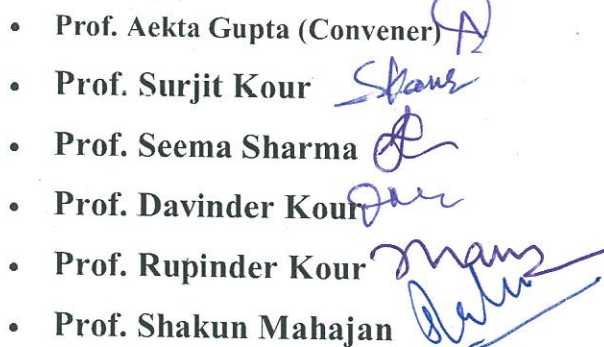 • Prof. Aekta Gupta (Convener)
• Prof. Surjit Kour Skour
• Prof. Seema Sharma
• Prof. Davinder Kour
• Prof. Rupinder Kour
• Prof. Shakun Mahajan